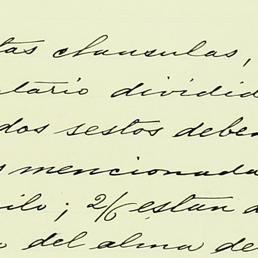 tas clausulas,
tario dividid
dos sestos deben
s mencionada
ilo; 2/6 estan a
del alma de